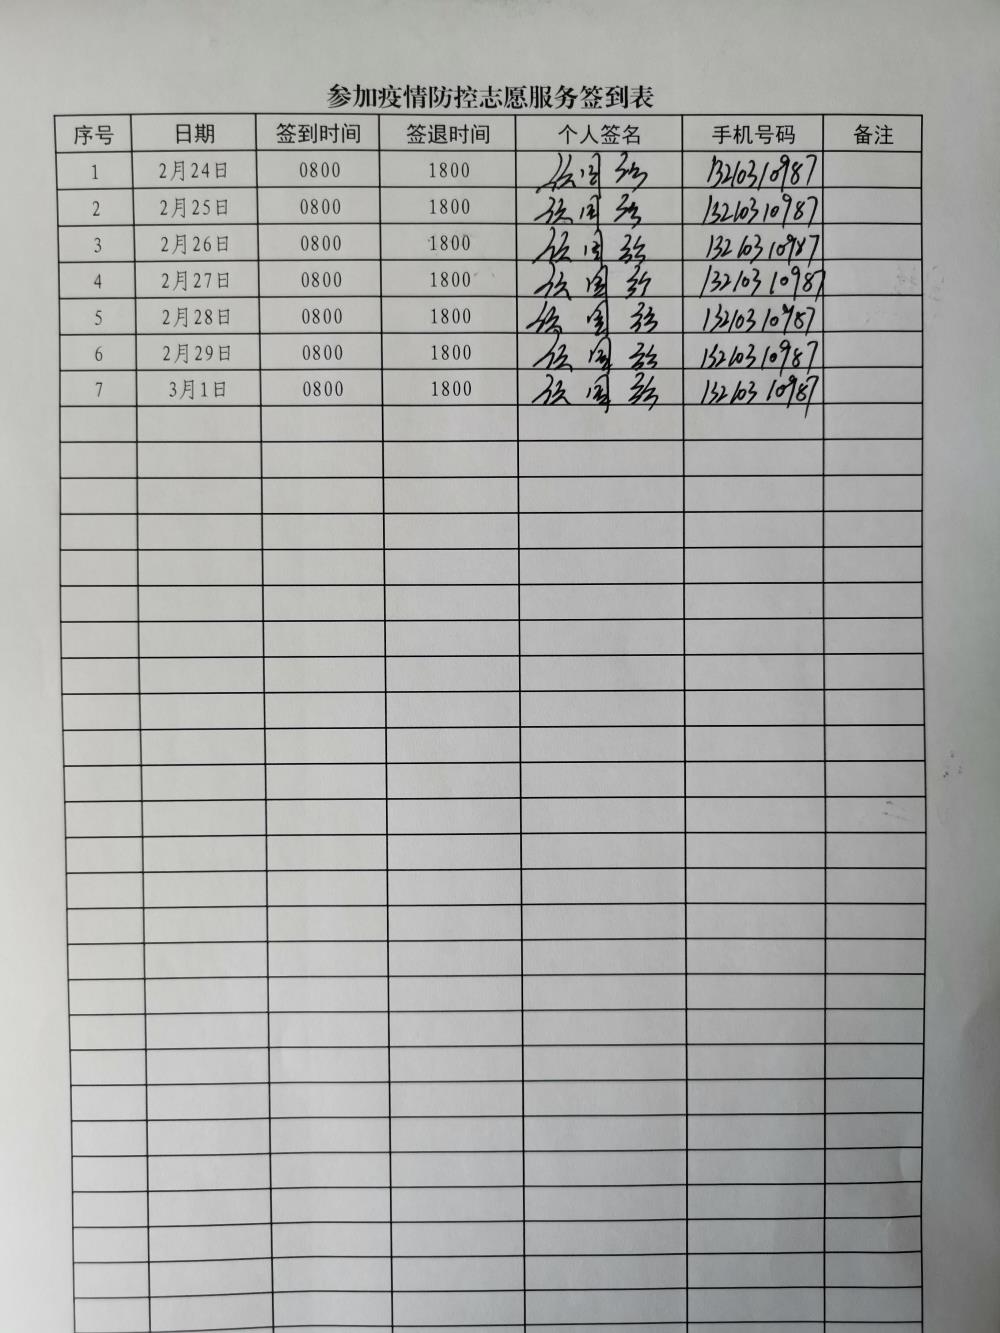 参加疫情防控志愿服务签到表
序号 日期 签到时间 签退时间 个人签名 手机号码 备注
1 2月24日 0800 1800 13210310987
2 2月25日 0800 1800 13210310987
3 2月26日 0800 1800 13210310987
4 2月27日 0800 1800 13210310987
5 2月28日 0800 1800 13210310987
6 2月29日 0800 1800 13210310987
7 3月1日 0800 1800 13210310987